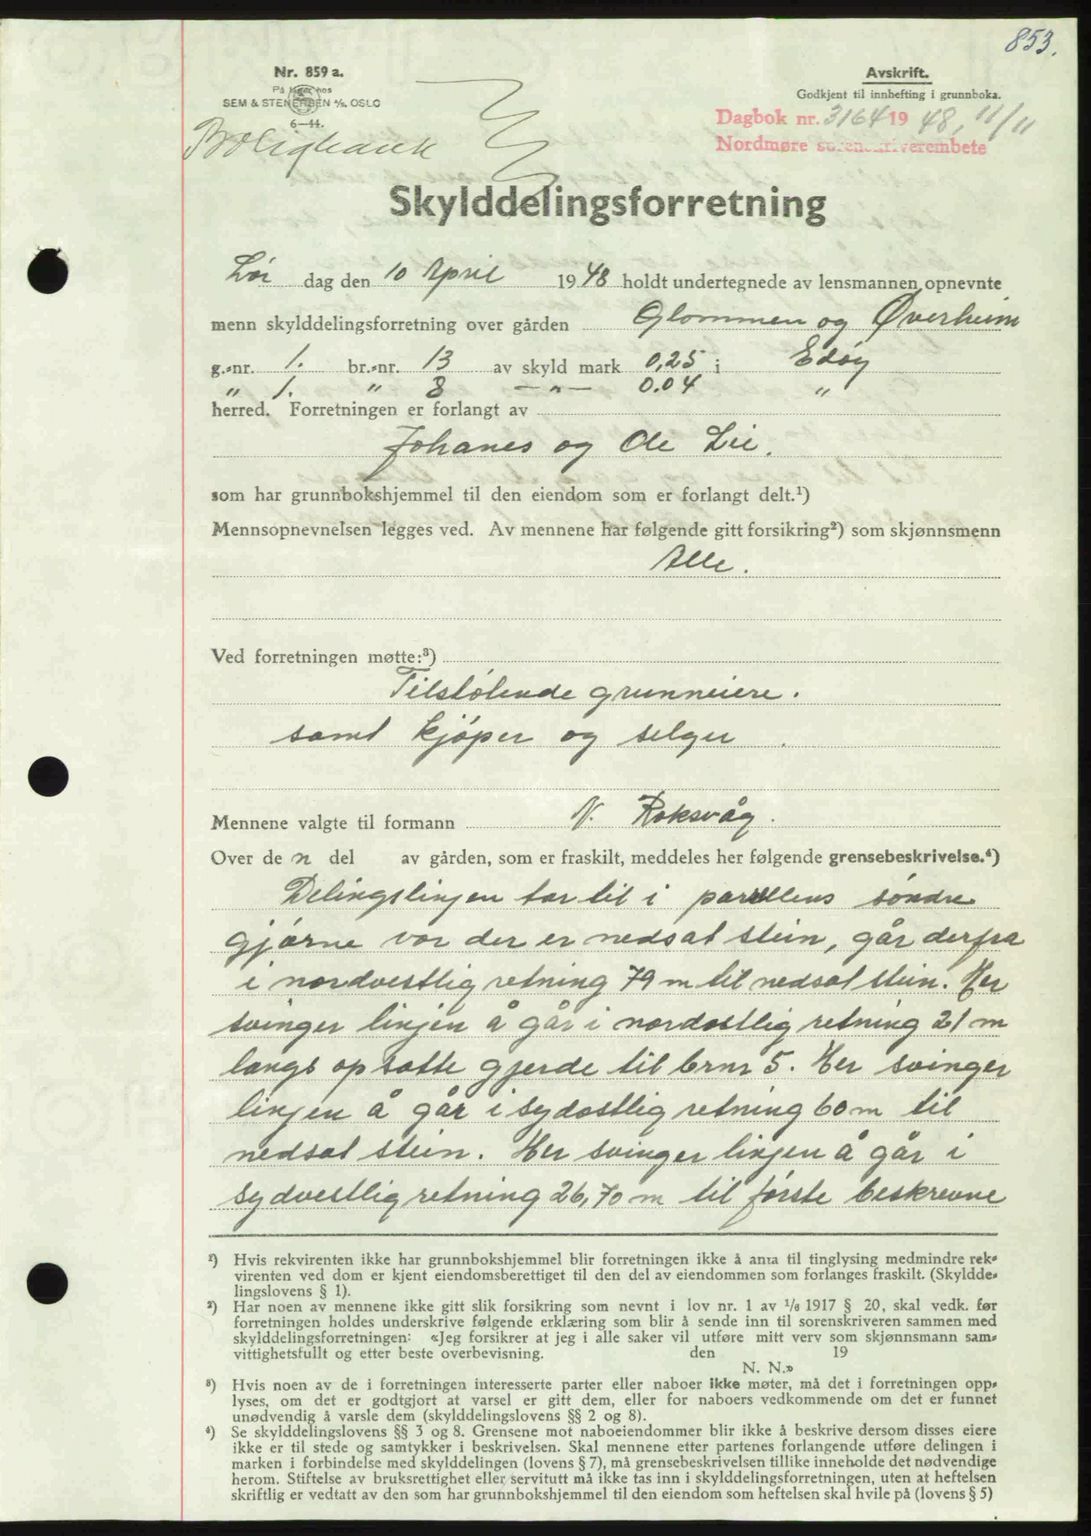 853.
Nr. 859 a.
På lager hos
SEM & STENERSEN A/S, OSLO
6-44.
Avskrift.
Godkjent til innhefting i grunnboka.
Dagbok nr. 3164 1948, 11/11
Nordmøre sorenskriverembete
Boligbank
Skylddelingsforretning
Lør dag den 10 April 1948 holdt undertegnede av lensmannen opnevnte
menn skylddelingsforretning over gården Glommen og Øverheim
g.-nr. 1. br.-nr. 13 av skyld mark 0,25 i Edøy
" 1. " 8 — " — 0.04 "
herred. Forretningen er forlangt av
Johanes og Ole Lie.
som har grunnbokshjemmel til den eiendom som er forlangt delt.¹)
Mennsopnevnelsen legges ved. Av mennene har følgende gitt forsikring²) som skjønnsmenn
Alle.
Ved forretningen møtte:³)
Tilstøtende grunneiere.
samt kjøper og selger.
Mennene valgte til formann N. Roksvåg.
Over de n del av gården, som er fraskilt, meddeles her følgende grensebeskrivelse.⁴)
Delingslinjen tar til i parsellens søndre
gjørne vor der er nedsat stein, går derfra
i nordvestlig retning 79 m til nedsat stein. Her
svinger linjen å går i nordostlig retning 21 m
langs opsatte gjerde til brnr 5. Her svinger
linjen å går i sydostlig retning 60 m til
nedsat stein. Her svinger linjen å går i
sydvestlig retning 26,70 m til første beskrevne
¹) Hvis rekvirenten ikke har grunnbokshjemmel blir forretningen ikke å anta til tinglysing medmindre rek-
virenten ved dom er kjent eiendomsberettiget til den del av eiendommen som forlanges fraskilt. (Skyldde-
lingslovens § 1).
²) Har noen av mennene ikke gitt slik forsikring som nevnt i lov nr. 1 av 1/6 1917 § 20, skal vedk. før
forretningen holdes underskrive følgende erklæring som blir å sende inn til sorenskriveren sammen med
skylddelingsforretningen: «Jeg forsikrer at jeg i alle saker vil utføre mitt verv som skjønnsmann sam-
vittighetsfullt og etter beste overbevisning. den 19
N. N.»
³) Hvis noen av de i forretningen interesserte parter eller naboer ikke møter, må det i forretningen opp-
lyses, om det er godtgjort at varsel er gitt dem, eller for naboers vedkommende om det er funnet
unødvendig å varsle dem (skylddelingslovens §§ 2 og 8).
⁴) Se skylddelingslovens §§ 3 og 8. Grensene mot naboeiendommer blir ikke å beskrive dersom disses eiere
ikke er til stede og samtykker i beskrivelsen. Skal mennene etter partenes forlangende utføre delingen i
marken i forbindelse med skylddelingen (lovens § 7), må grensebeskrivelsen tillike inneholde det nødvendige
herom. Stiftelse av bruksrettighet eller servitutt må ikke tas inn i skylddelingsforretningen, uten at heftelsen
skriftlig er vedtatt av den som har grunnbokshjemmel til den eiendom som heftelsen skal hvile på (lovens § 5)